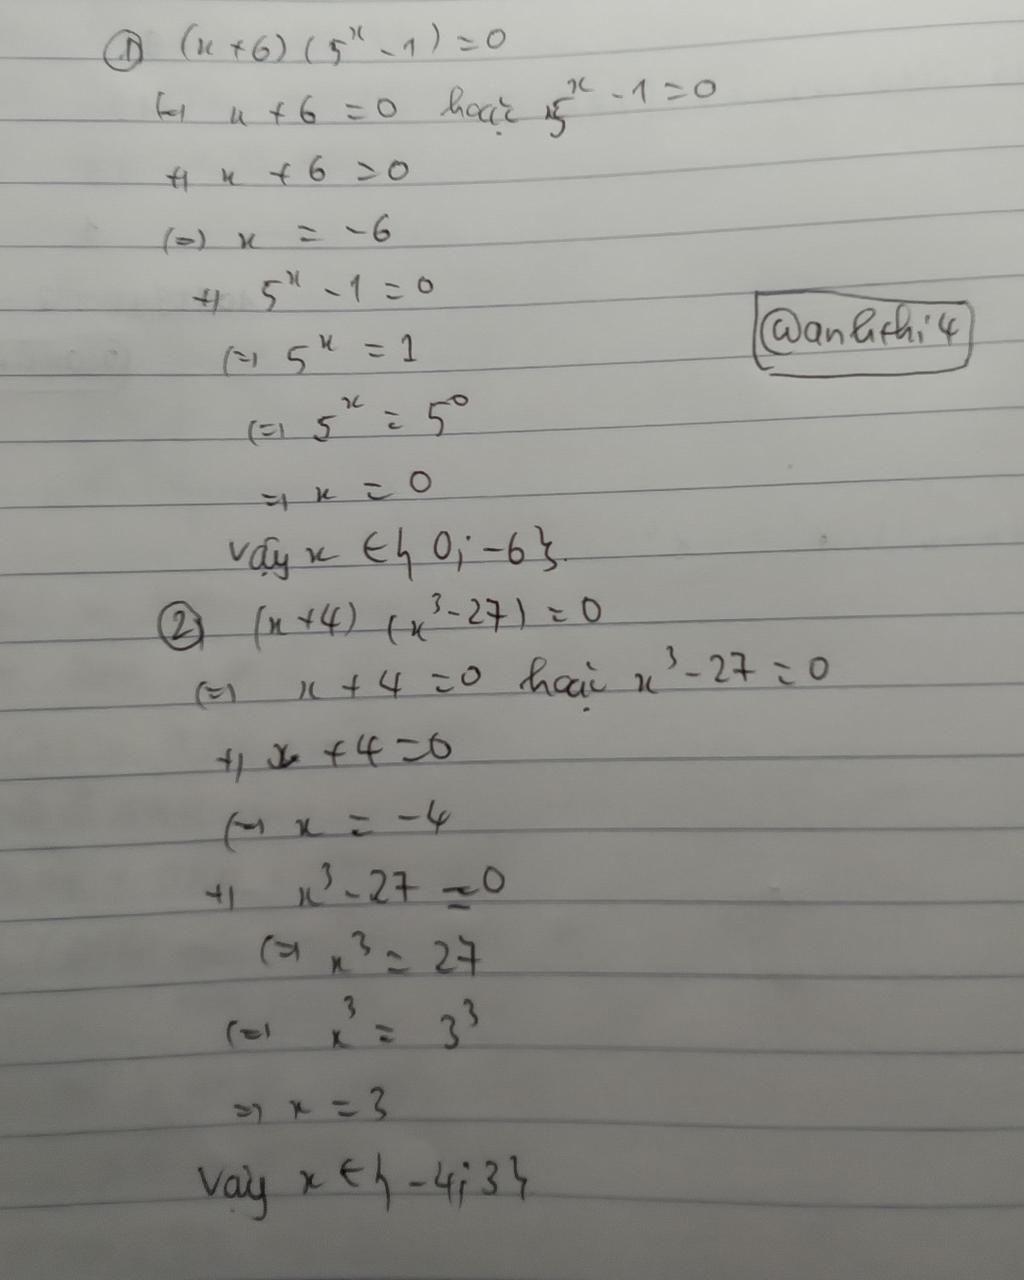 ① (x+6)(5ˣ-1)=0
(=) x+6=0 hoặc 5ˣ-1=0
+) x+6=0
(=) x = -6
+) 5ˣ-1=0
(=) 5ˣ = 1
@anhthi4
(=) 5ˣ = 5⁰
=) x = 0
Vậy x ∈ { 0; -6}.
② (x+4) (x³-27) = 0
(=) x+4=0 hoặc x³-27=0
+) x+4=0
(=) x = -4
+) x³-27=0
(=) x³ = 27
(=) x³ = 3³
=) x = 3
Vậy x ∈ { -4; 3}